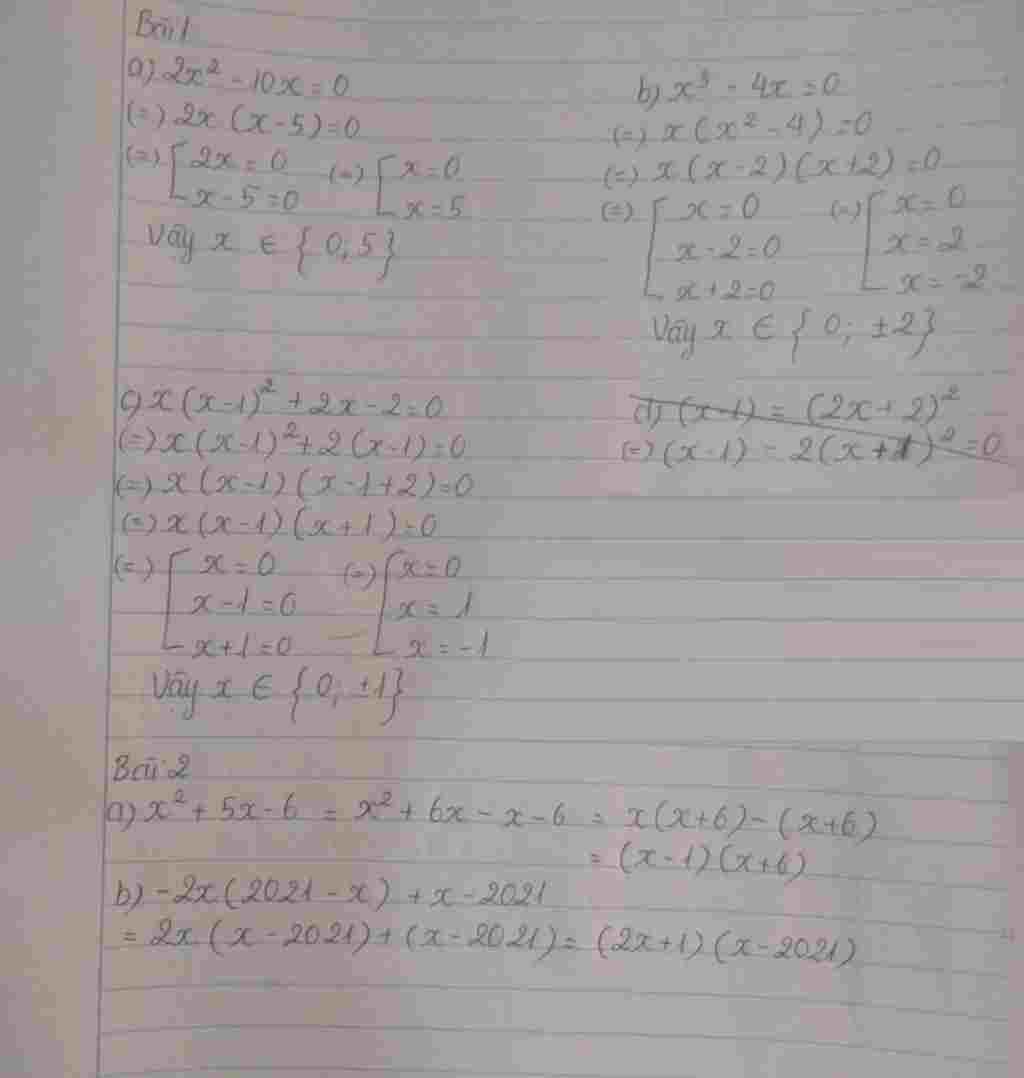 Bài 1
a) 2x² - 10x = 0
(=) 2x (x - 5) = 0
(=) [ 2x = 0 (=) [ x = 0
x - 5 = 0 x = 5
Vậy x ∈ { 0; 5 }
b) x³ - 4x = 0
(=) x (x² - 4) = 0
(=) x (x - 2) (x + 2) = 0
(=) [ x = 0 (=) [ x = 0
x - 2 = 0 x = 2
x + 2 = 0 x = -2
Vậy x ∈ { 0; ±2 }
c) x (x - 1)² + 2x - 2 = 0
(=) x (x - 1)² + 2 (x - 1) = 0
(=) x (x - 1) (x - 1 + 2) = 0
(=) x (x - 1) (x + 1) = 0
(=) [ x = 0 (=) [ x = 0
x - 1 = 0 x = 1
x + 1 = 0 x = -1
Vậy x ∈ { 0; ±1 }
d) (x - 1) = (2x + 2)²
(=) (x - 1) - 2 (x + 1)² = 0
Bài 2
a) x² + 5x - 6 = x² + 6x - x - 6 = x(x + 6) - (x + 6)
= (x - 1) (x + 6)
b) -2x (2021 - x) + x - 2021
= 2x (x - 2021) + (x - 2021) = (2x + 1) (x - 2021)